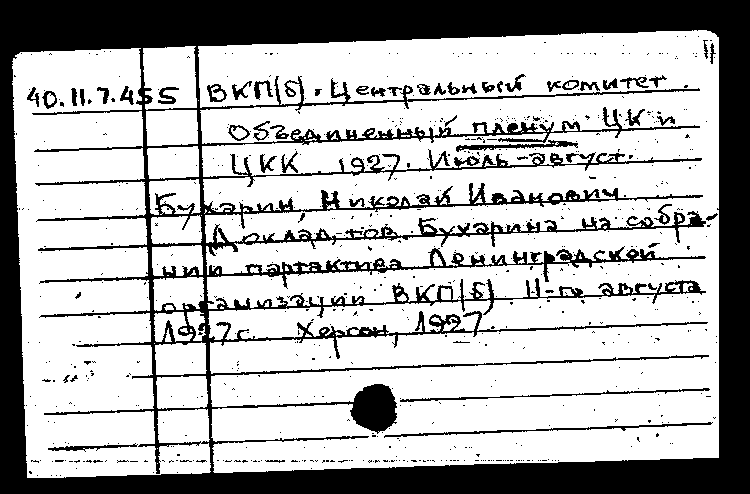 40.11.7.455 ВКП(б). Центральный комитет.
Объединенный пленум ЦК и
ЦКК. 1927. Июль-август.
Бухарин, Николай Иванович
Доклад тов. Бухарина на собра-
нии партактива Ленинградской
организации ВКП(б) 11-го августа
1927 г. Херсон, 1927.